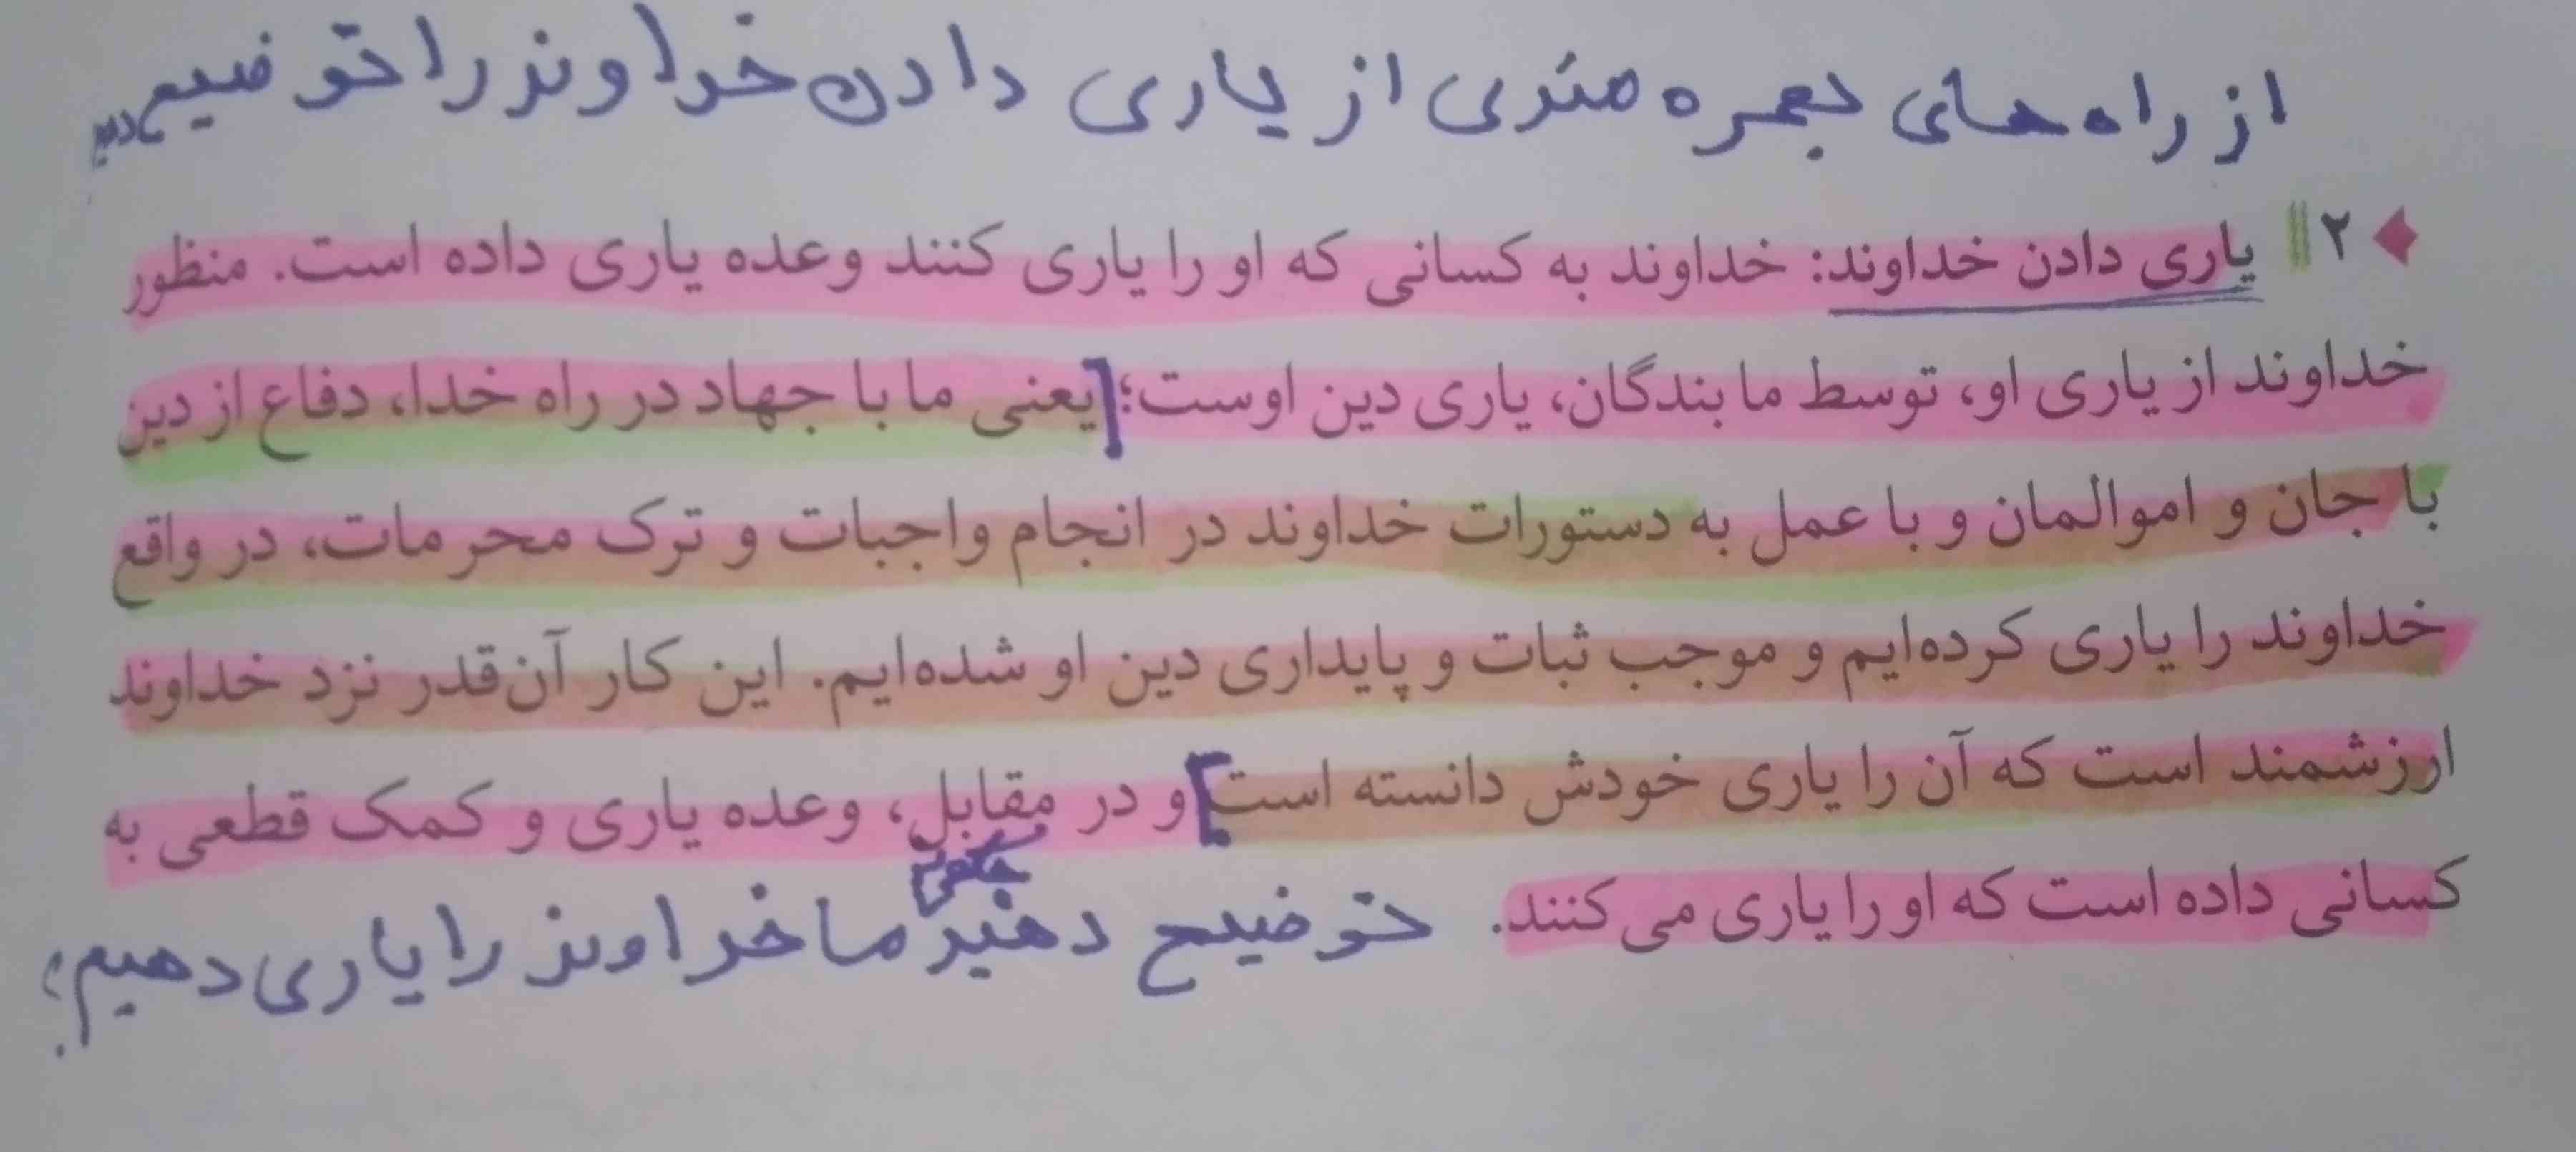 از راه های بهره مندی از یاری دادن خداوند را توضیح دهید
۲ یاری دادن خداوند: خداوند به کسانی که او را یاری کنند وعده یاری داده است. منظور
خداوند از یاری او، توسط ما بندگان، یاری دین اوست؛ [یعنی ما با جهاد در راه خدا، دفاع از دین
با جان و اموالمان و با عمل به دستورات خداوند در انجام واجبات و ترک محرمات، در واقع
خداوند را یاری کرده‌ایم و موجب ثبات و پایداری دین او شده‌ایم. این کار آن‌قدر نزد خداوند
ارزشمند است که آن را یاری خودش دانسته است] و در مقابل، وعده یاری و کمک قطعی به
کسانی داده است که او را یاری می‌کنند.
توضیح دهید چگونه ما خداوند را یاری دهیم؟